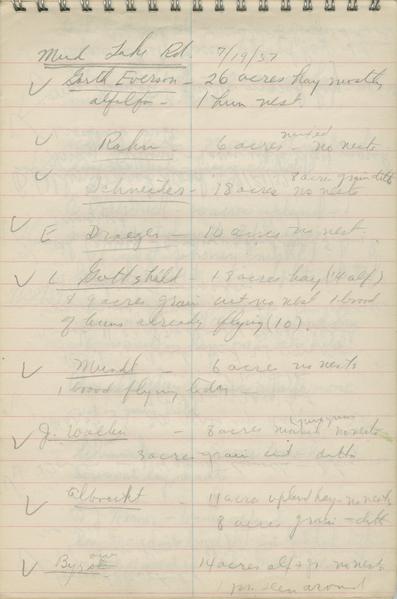 Mud Lake Rd. 7/19/37
Garth Everson - 26 acres hay mostly
alfalfa - 1 hun nest.
Rahn - 6 acres mixed - no nests
8 acres grain ditto
Schneiter - 18 acres no nests
E Draeger - 10 acres no nest.
L Gottschild - 18 acres hay (14 alf)
& 9 acres grain cut no nest 1 brood
of huns already flying (10).
Mundt - 6 acres no nests
1 brood flying today
J. Wollin - 8 acres mixed no nests
3 acres grain cut ditto
Albrecht - 11 acre upland hay - no nests
8 acres grain - ditto
14 acres alf + gr. no nests
seen around